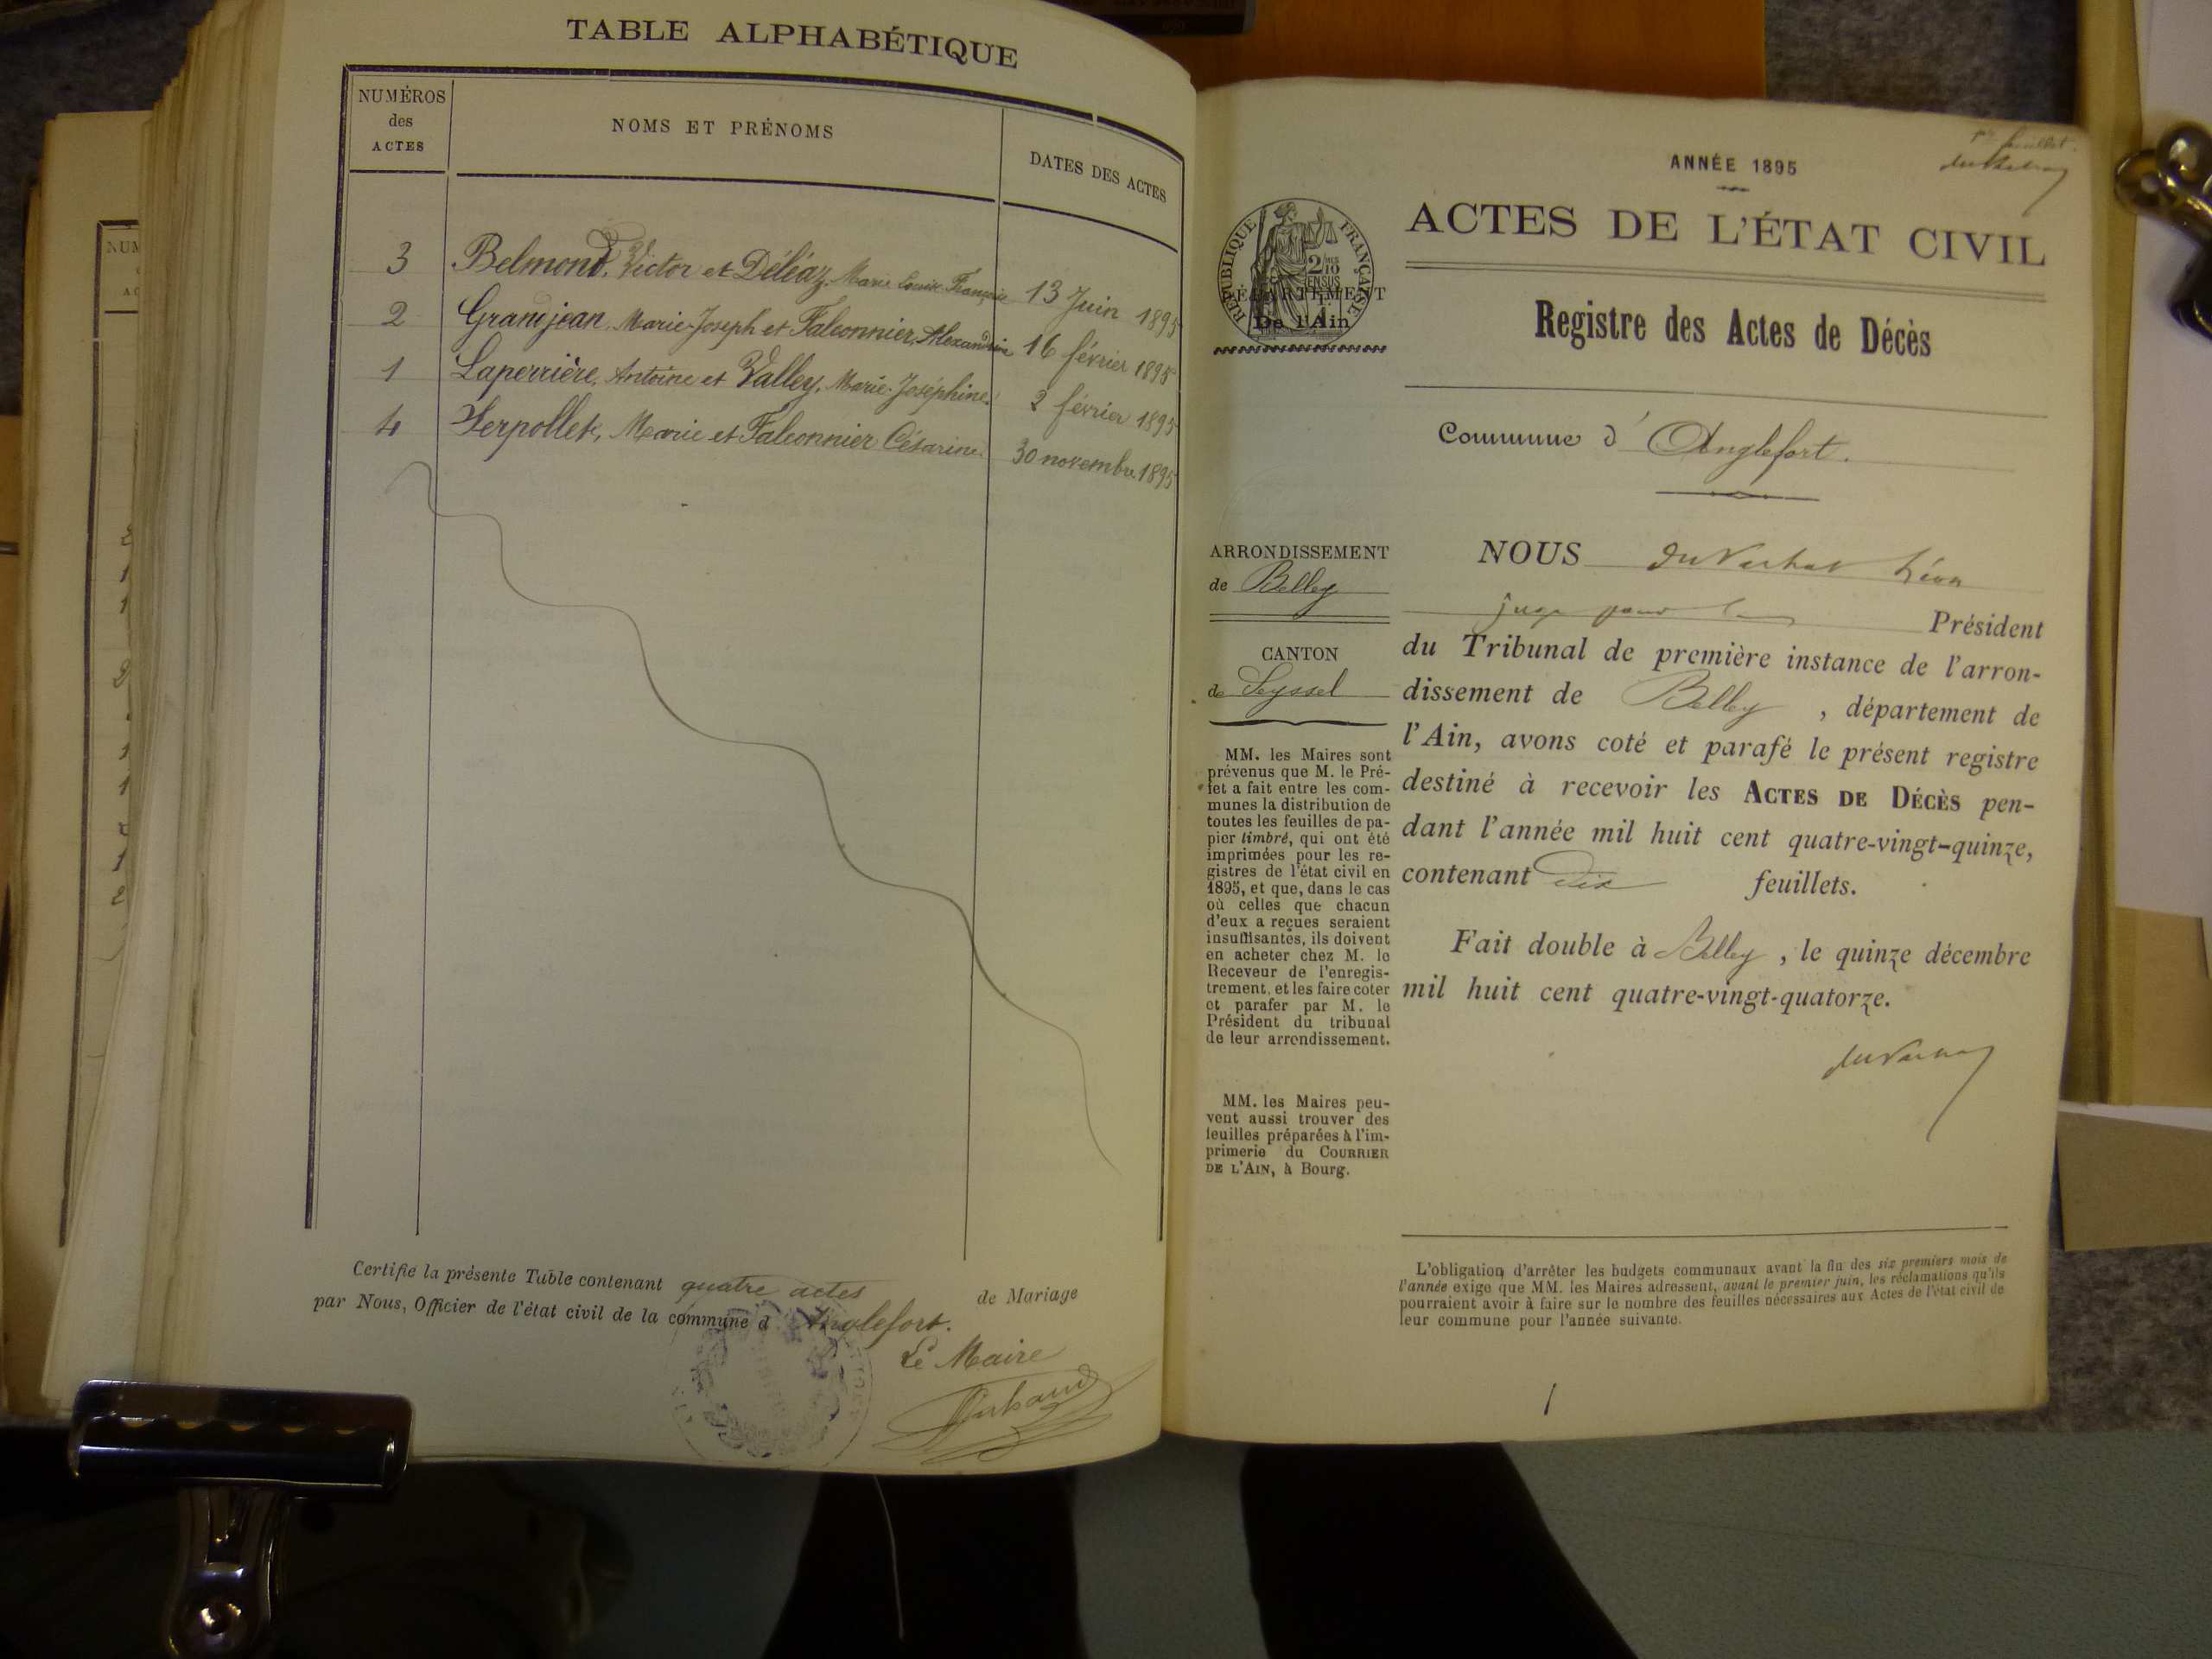 TABLE ALPHABÉTIQUE
NUMÉROS
des
ACTES
NOMS ET PRÉNOMS
DATES DES ACTES
3 Belmond, Victor et Déléaz, Marie Louise Françoise 13 Juin 1895
2 Grandjean, Marie-Joseph et Falconnier, Alexandrine 16 février 1895
1 Laperrière, Antoine et Valley, Marie-Joséphine. 2 février 1895
4 Serpollet, Marie et Falconnier Césarine. 30 novembre 1895
Certifie la présente Table contenant quatre actes de Mariage
par Nous, Officier de l'état civil de la commune d'Anglefort.
Le Maire
NUM
AC
1er feuillet.
ANNÉE 1895
ACTES DE L'ÉTAT CIVIL
RÉPUBLIQUE FRANÇAISE
2/10
EN SUS
DÉPARTEMENT
De l'Ain
Registre des Actes de Décès
Commune d'Anglefort.
ARRONDISSEMENT
de Belley
CANTON
de Seyssel
MM. les Maires sont
prévenus que M. le Pré-
fet a fait entre les com-
munes la distribution de
toutes les feuilles de pa-
pier timbré, qui ont été
imprimées pour les re-
gistres de l'état civil en
1895, et que, dans le cas
où celles que chacun
d'eux a reçues seraient
insuffisantes, ils doivent
en acheter chez M. le
Receveur de l'enregis-
trement, et les faire coter
et parafer par M. le
Président du tribunal
de leur arrondissement.
MM. les Maires peu-
vent aussi trouver des
feuilles préparées à l'im-
primerie du COURRIER
DE L'AIN, à Bourg.
NOUS Léon
juge pour le Président
du Tribunal de première instance de l'arron-
dissement de Belley, département de
l'Ain, avons coté et parafé le présent registre
destiné à recevoir les ACTES DE DÉCÈS pen-
dant l'année mil huit cent quatre-vingt-quinze,
contenant Dix feuillets.
Fait double à Belley, le quinze décembre
mil huit cent quatre-vingt-quatorze.
L'obligation d'arrêter les budgets communaux avant la fin des six premiers mois de
l'année exige que MM. les Maires adressent, avant le premier juin, les réclamations qu'ils
pourraient avoir à faire sur le nombre des feuilles nécessaires aux Actes de l'état civil de
leur commune pour l'année suivante.
1